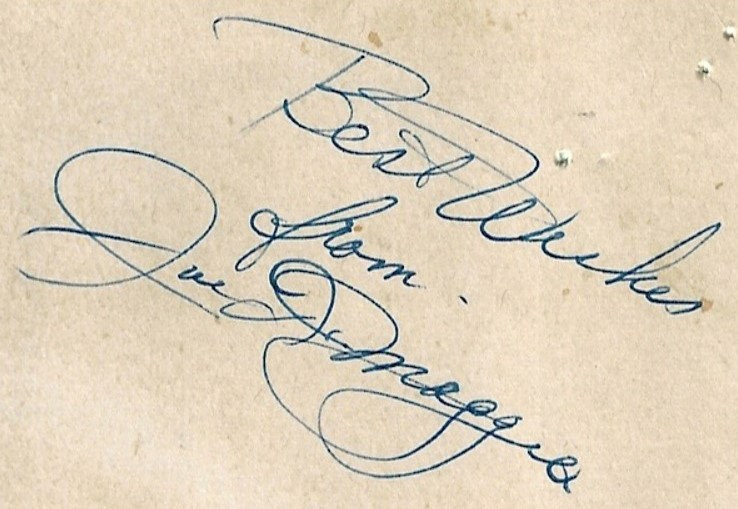 Best Wishes
from
Joe DiMaggio